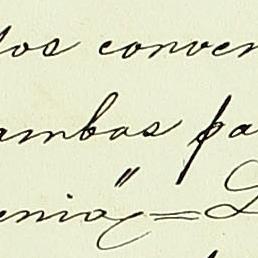 los conven
ambas pa
enia" =